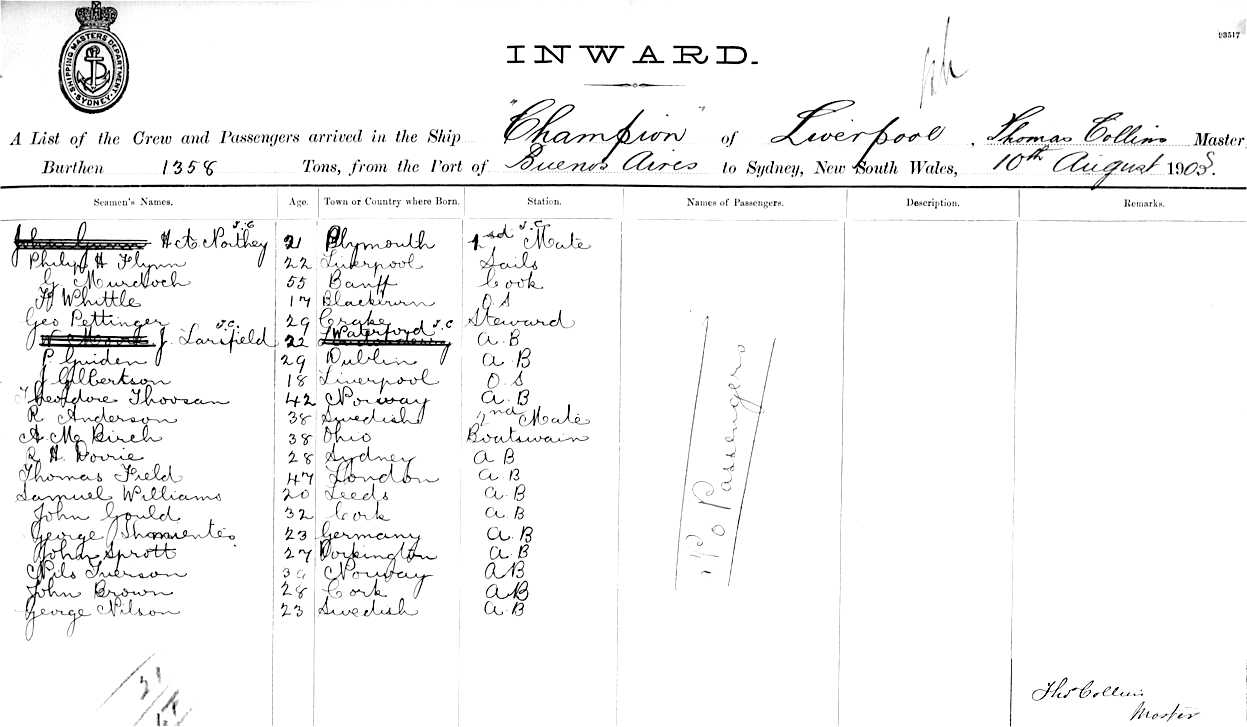 SHIPPING MASTERS DEPARTMENT.
SYDNEY
93517
INWARD.
A List of the Crew and Passengers arrived in the Ship "Champion" of Liverpool, Thomas Collins Master
Burthen 1358 Tons, from the Port of Buenos Aires to Sydney, New South Wales, 10th August 1903.
Seamen's Names. Age. Town or Country where Born. Station. Names of Passengers. Description. Remarks.
H A Northey J.C 21 Plymouth Mate J.C.
Philip H Flynn 22 Liverpool Sails
G Murdoch 55 Banff Cook
H Whittle 17 Blackburn O S
Geo Pettinger 29 Steward
J. Larsfield J.C. 22 Waterford J.C A.B
P Guiden 29 Dublin A.B
J Gilbertson 18 Liverpool O S
Theodore Thovsan 42 Norway A.B
R Anderson 38 Swedish 2nd Mate
A. Mc Birch 38 Ohio Boatswain
R H Dorrie 28 Sydney A B
Thomas Field 47 London A.B
Samuel Williams 20 Leeds A.B
John Gould 32 Cork A B
George 23 Germany A.B
John Sprott 27 Workington A.B
Nils Iverson Norway AB
John Brown 28 Cork AB
George Nilson 23 Swedish A.B
No Passengers
21
Thos Collins
Master